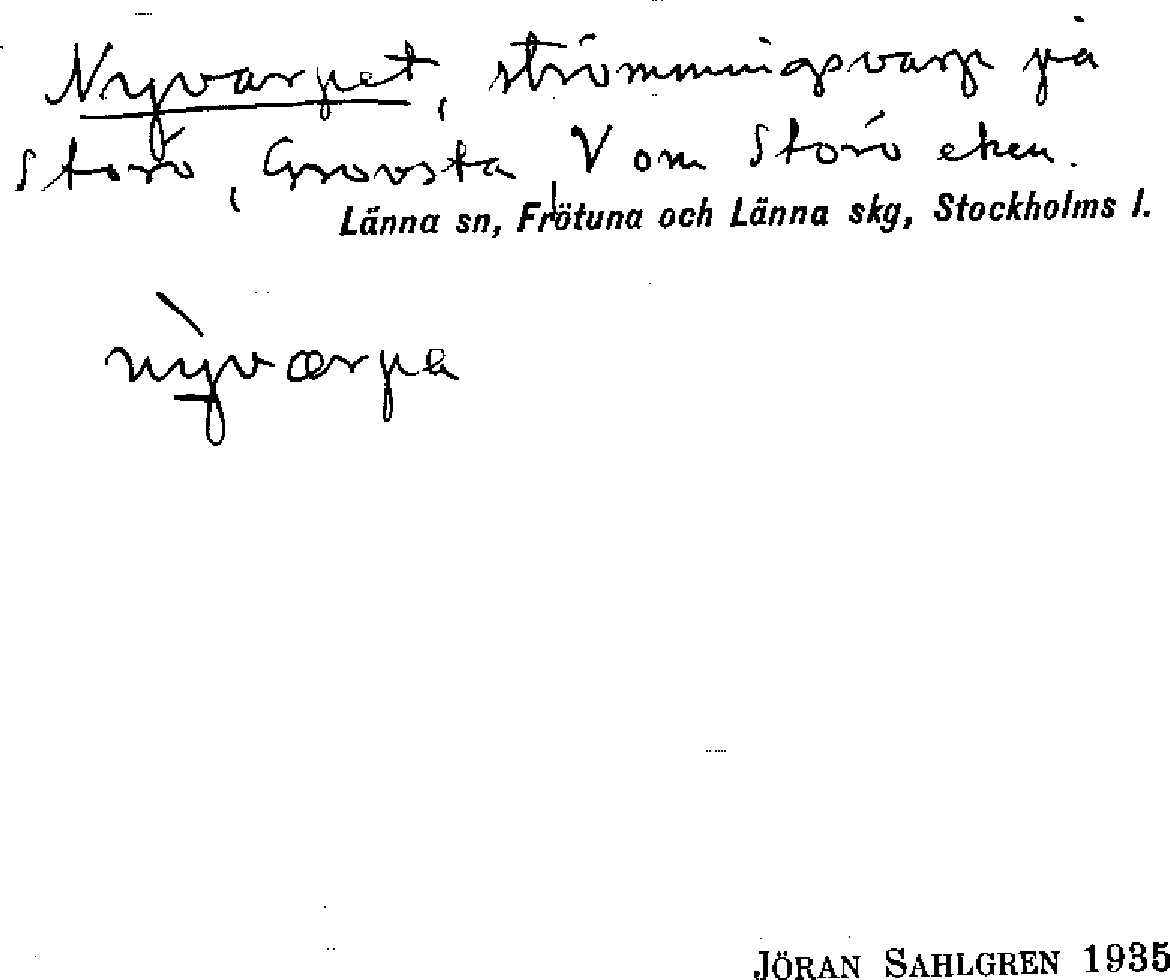 Nyvarpet, strömmingsvarp på
Storö, Grovsta, V om Storö eken.
Länna sn, Frötuna och Länna skg, Stockholms l.
nỳværpe
JÖRAN SAHLGREN 1935